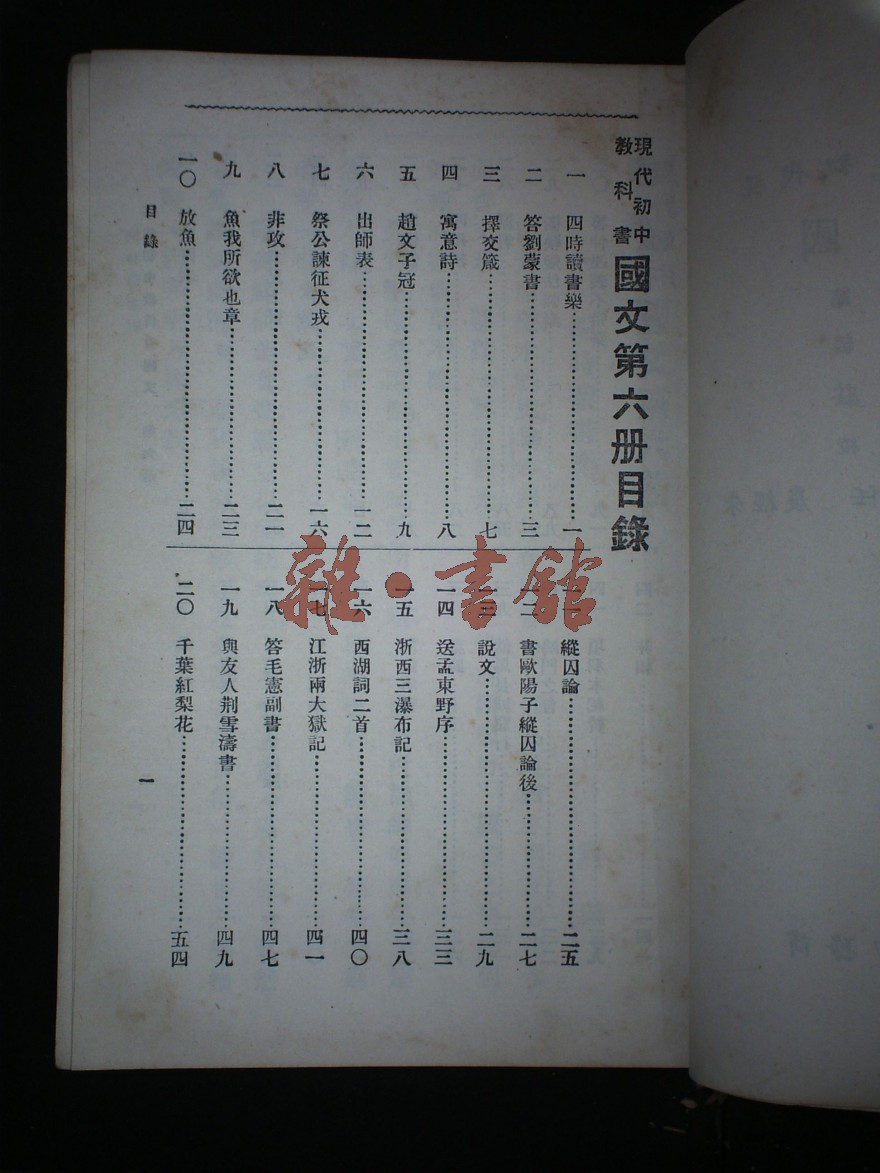 現代初中
教科書
國文第六册目錄
一 四時讀書樂 一
二 答劉蒙書 三
三 擇交箴 七
四 寓意詩 八
五 趙文子冠 九
六 出師表 一二
七 祭公諫征犬戎 一六
八 非攻 二一
九 魚我所欲也章 二三
一〇 放魚 二四
一一 縱囚論 二五
一二 書歐陽子縱囚論後 二七
一三 說文 二九
一四 送孟東野序 三三
一五 浙西三瀑布記 三八
一六 西湖詞二首 四〇
一七 江浙兩大獄記 四一
一八 答毛憲副書 四七
一九 與友人荆雪濤書 四九
二〇 千葉紅梨花 五四
目錄
一
雜·書館